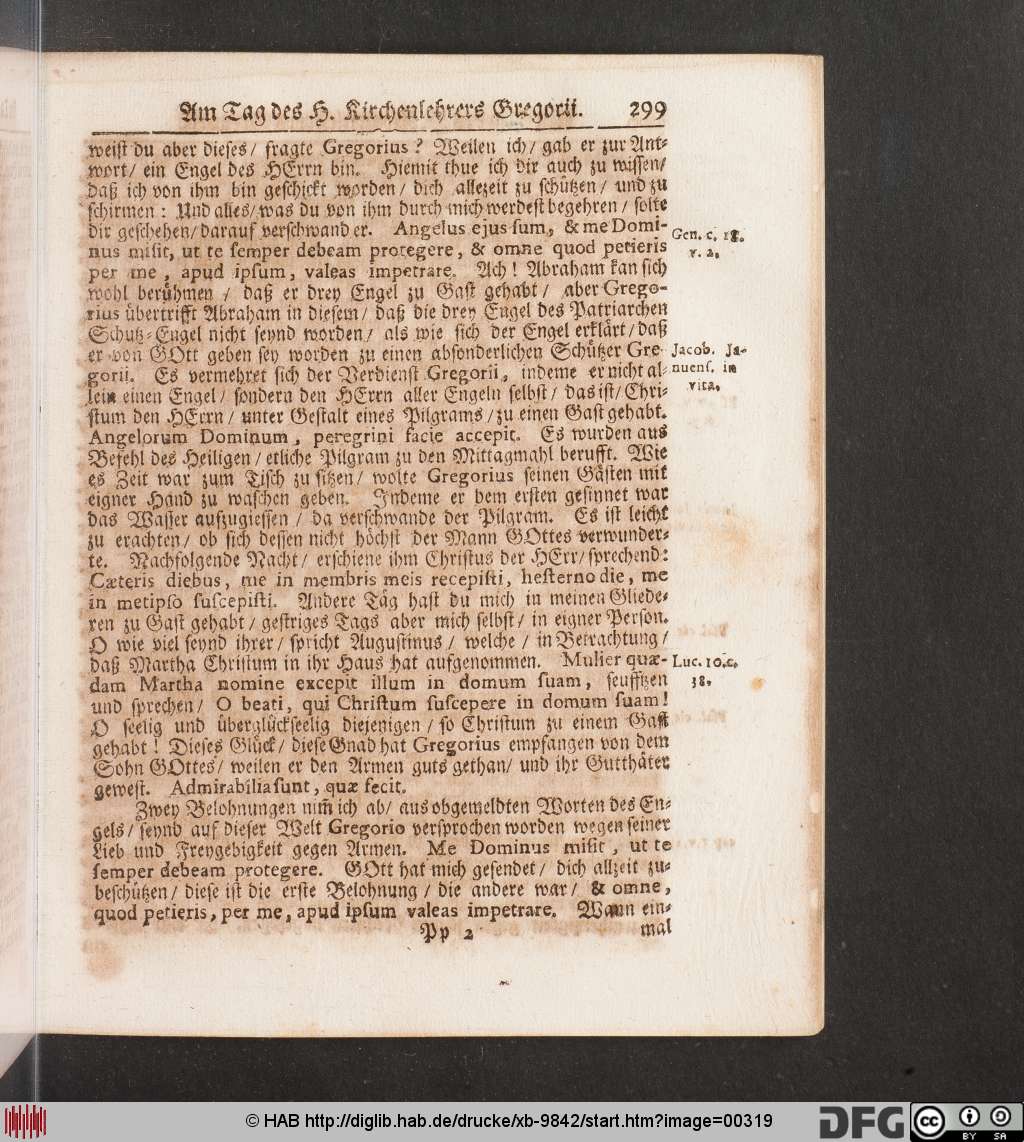 Am Tag des H. Kirchenlehrers Gregorii. 299
weist du aber dieses/ fragte Gregorius? Weilen ich/ gab er zur Ant-
wort/ ein Engel des HErrn bin. Hiemit thue ich dir auch zu wissen/
daß ich von ihm bin geschickt worden/ dich allezeit zu schützen/ und zu
schirmen: Und alles/ was du von ihm durch mich werdest begehren/ solte
dir geschehen/ darauf verschwand er. Angelus ejus sum, & me Domi-
nus misit, ut te semper debeam protegere, & omne quod petieris
per me, apud ipsum, valeas impetrare. Ach! Abraham kan sich
wohl berühmen/ daß er drey Engel zu Gast gehabt/ aber Grego-
rius übertrifft Abraham in diesem/ daß die drey Engel des Patriarchen
Schutz-Engel nicht seynd worden/ als wie sich der Engel erklärt/ daß
er von GOtt geben sey worden zu einen absonderlichen Schützer Gre-
gorii. Es vermehret sich der Verdienst Gregorii, indeme er nicht al-
lein einen Engel/ sondern den HErrn aller Engeln selbst/ das ist/ Chri-
stum den HErrn/ unter Gestalt eines Pilgrams/ zu einen Gast gehabt.
Angelorum Dominum, peregrini facie accepit. Es wurden aus
Befehl des Heiligen/ etliche Pilgram zu den Mittagmahl berufft. Wie
es Zeit war zum Tisch zu sitzen/ wolte Gregorius seinen Gästen mit
eigner Hand zu waschen geben. Indeme er dem ersten gesinnet war
das Wasser aufzugiessen/ da verschwande der Pilgram. Es ist leicht
zu erachten/ ob sich dessen nicht höchst der Mann GOttes verwunder-
te. Nachfolgende Nacht/ erschiene ihm Christus der HErr/ sprechend:
Cæteris diebus, me in membris meis recepisti, hesterno die, me
in metipso suscepisti. Andere Täg hast du mich in meinen Gliede-
ren zu Gast gehabt/ gestriges Tags aber mich selbst/ in eigner Person.
O wie viel seynd ihrer/ spricht Augustinus/ welche/ in Betrachtung/
daß Martha Christum in ihr Haus hat aufgenommen. Mulier quæ-
dam Martha nomine excepit illum in domum suam, seufftzen
und sprechen/ O beati, qui Christum suscepere in domum suam!
O seelig und überglückseelig diejenigen/ so Christum zu einem Gast
gehabt! Dieses Glück/ diese Gnad hat Gregorius empfangen von dem
Sohn GOttes/ weilen er den Armen guts gethan/ und ihr Gutthäter
gewest. Admirabilia sunt, quæ fecit.
Zwey Belohnungen nim̃ ich ab/ aus obgemeldten Worten des En-
gels/ seynd auf dieser Welt Gregorio versprochen worden wegen seiner
Lieb und Freygebigkeit gegen Armen. Me Dominus misit, ut te
semper debeam protegere. GOtt hat mich gesendet/ dich allzeit zu-
beschützen/ diese ist die erste Belohnung/ die andere war/ & omne,
quod petieris, per me, apud ipsum valeas impetrare. Wann ein-
Pp 2 mal
Gen. c. 18.
v. 2.
Jacob. Ja-
nuens. in
vita.
Luc. 10. c.
38.
© HAB http://diglib.hab.de/drucke/xb-9842/start.htm?image=00319
DFG
cc
BY SA